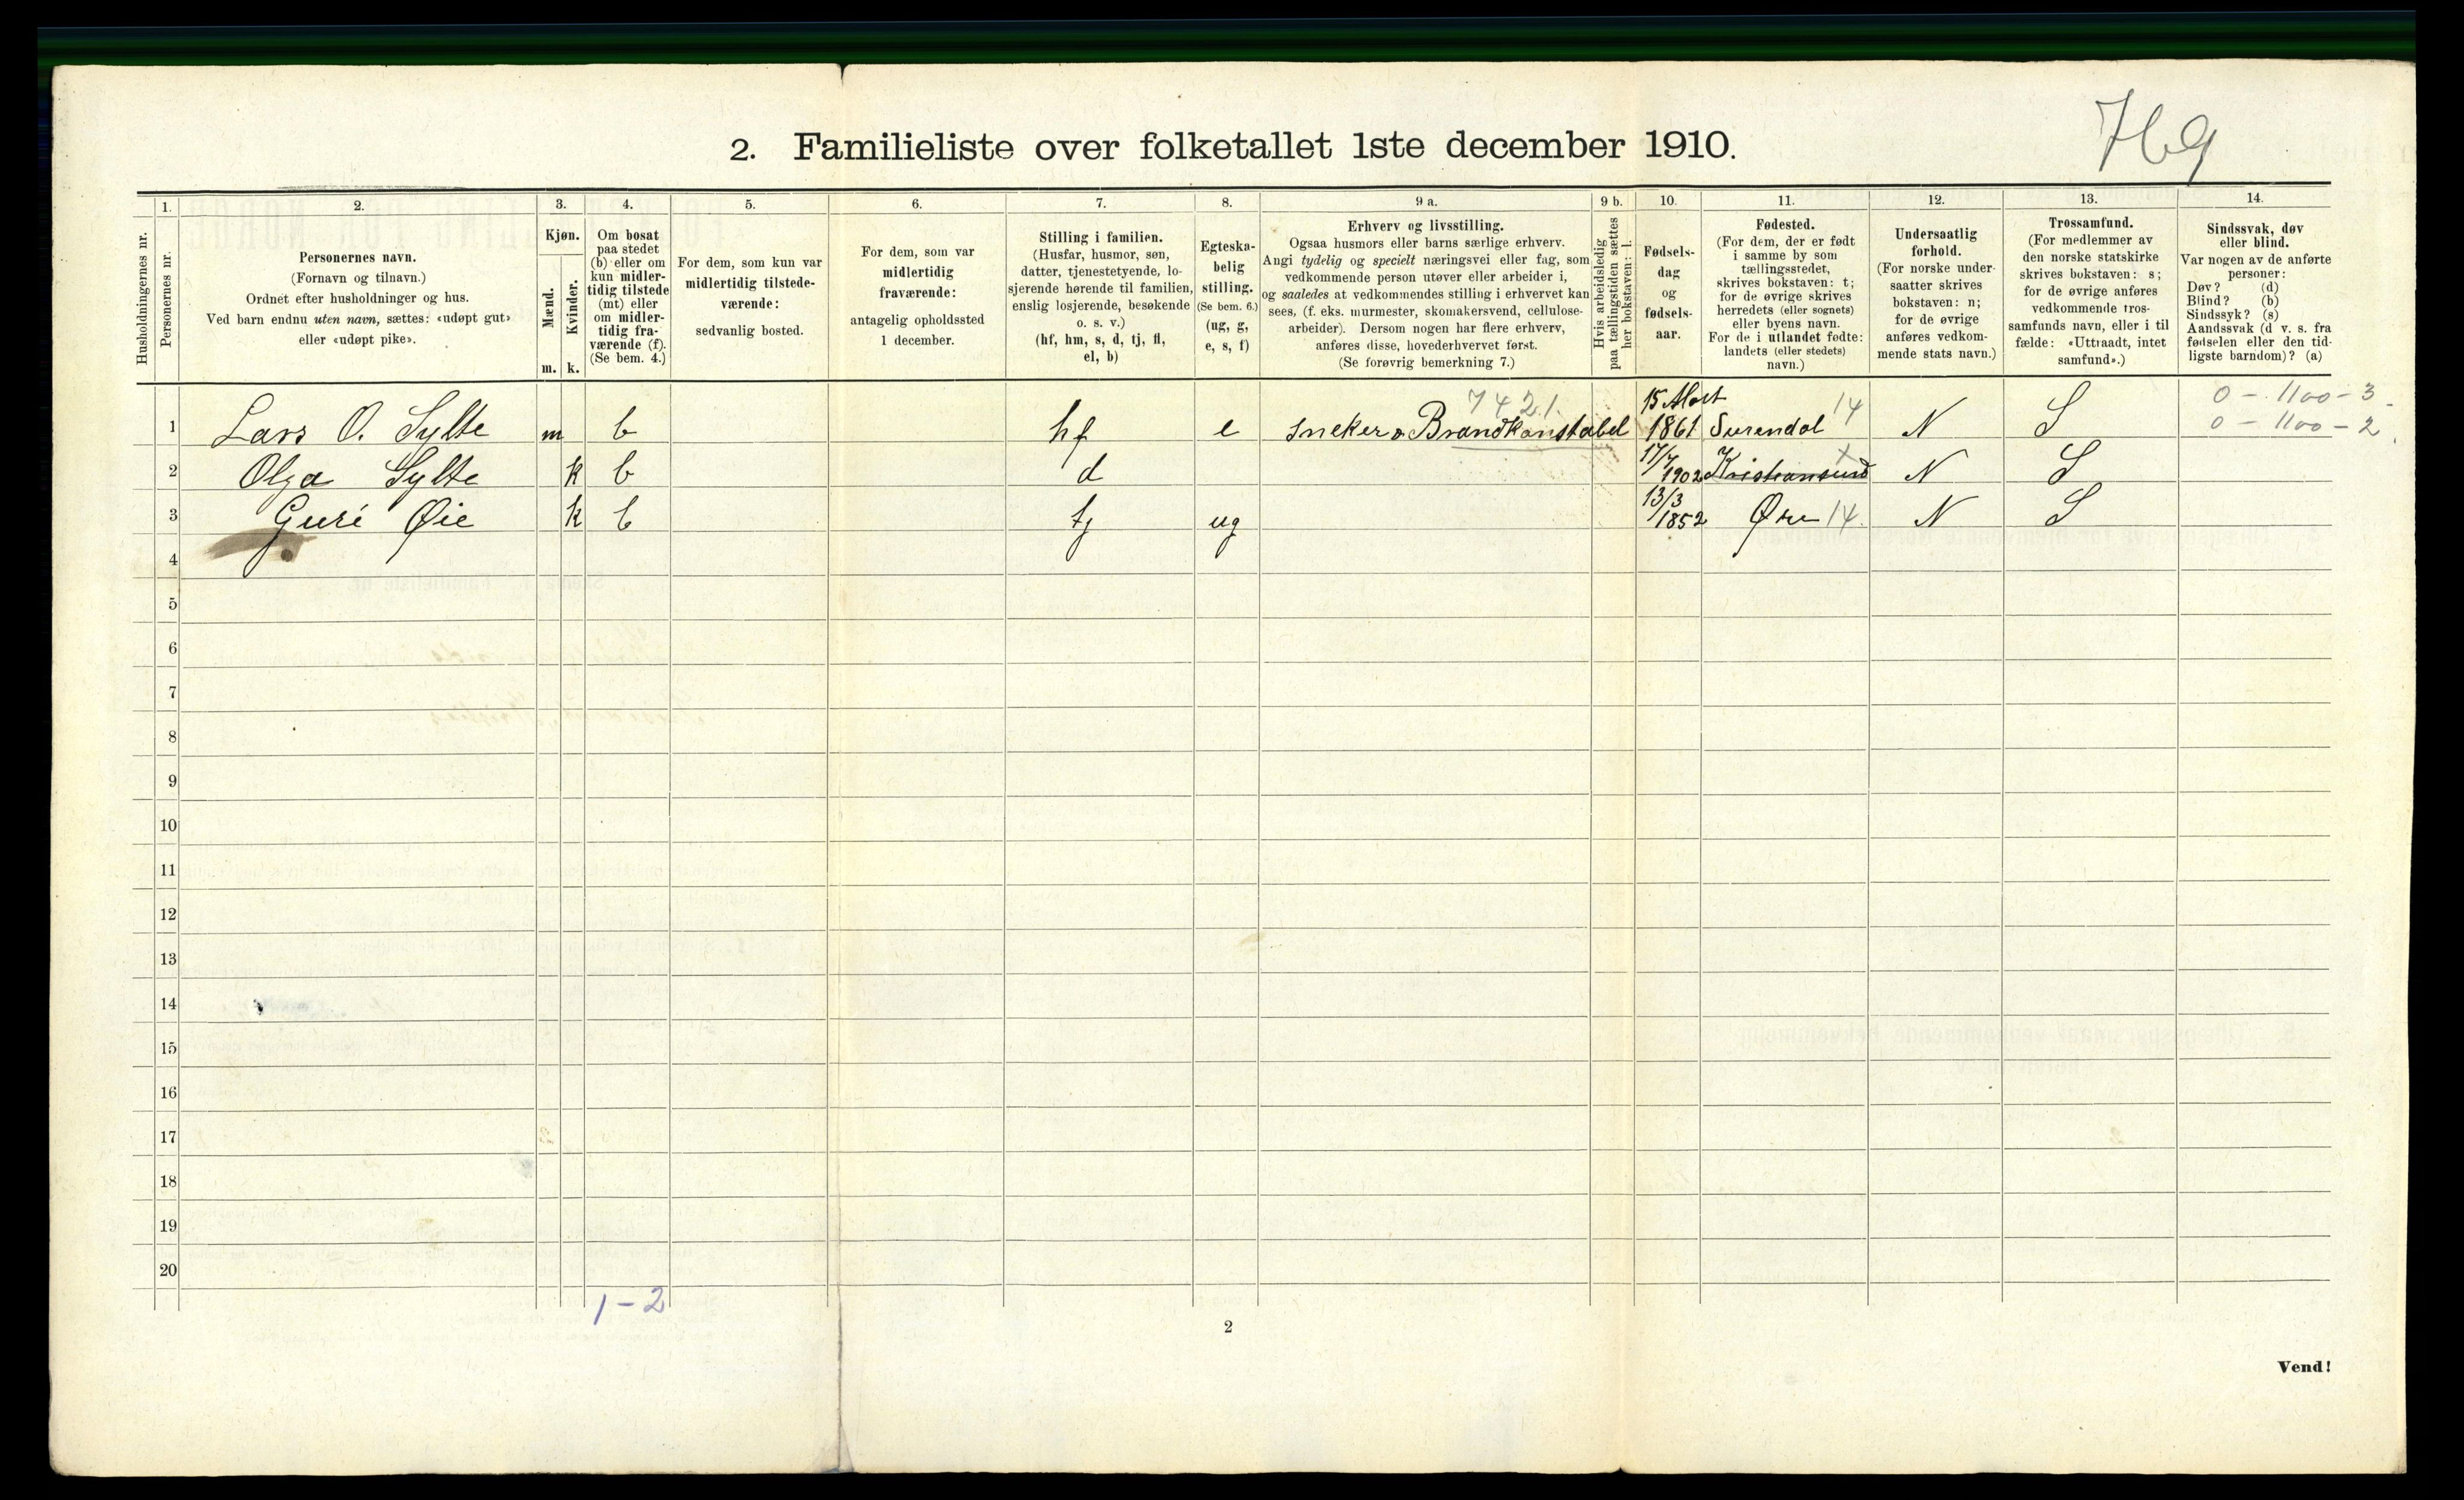 769
2. Familieliste over folketallet 1ste december 1910.
Husholdningernes nr.
1.
Personernes nr.
2.
Personernes navn.
(Fornavn og tilnavn.)
Ordnet efter husholdninger og hus.
Ved barn endnu uten navn, sættes: «udøpt gut»
eller «udøpt pike».
3.
Kjøn.
Mænd.
Kvinder.
m. k.
4.
Om bosat
paa stedet
(b) eller om
kun midler-
tidig tilstede
(mt) eller
om midler-
tidig fra-
værende (f).
(Se bem. 4.)
5.
For dem, som kun var
midlertidig tilstede-
værende:
sedvanlig bosted.
6.
For dem, som var
midlertidig
fraværende:
antagelig opholdssted
1 december.
7.
Stilling i familien.
(Husfar, husmor, søn,
datter, tjenestetyende, lo-
sjerende hørende til familien,
enslig losjerende, besøkende
o. s. v.)
(hf, hm, s, d, tj, fl,
el, b)
8.
Egteska-
belig
stilling.
(Se bem. 6.)
(ug, g,
e, s, f)
9 a.
Erhverv og livsstilling.
Ogsaa husmors eller barns særlige erhverv.
Angi tydelig og specielt næringsvei eller fag, som
vedkommende person utøver eller arbeider i,
og saaledes at vedkommendes stilling i erhvervet kan
sees, (f. eks. murmester, skomakersvend, cellulose-
arbeider). Dersom nogen har flere erhverv,
anføres disse, hovederhvervet først.
(Se forøvrig bemerkning 7.)
9 b.
Hvis arbeidsledig
paa tællingstiden sættes
her bokstaven: l.
10.
Fødsels-
dag
og
fødsels-
aar.
11.
Fødested.
(For dem, der er født
i samme by som
tællingsstedet,
skrives bokstaven: t;
for de øvrige skrives
herredets (eller sognets)
eller byens navn.
For de i utlandet fødte:
landets (eller stedets)
navn.)
12.
Undersaatlig
forhold.
(For norske under-
saatter skrives
bokstaven: n;
for de øvrige
anføres vedkom-
mende stats navn.)
13.
Trossamfund.
(For medlemmer av
den norske statskirke
skrives bokstaven: s;
for de øvrige anføres
vedkommende tros-
samfunds navn, eller i til-
fælde: «Uttraadt, intet
samfund».)
14.
Sindssvak, døv
eller blind.
Var nogen av de anførte
personer:
Døv? (d)
Blind? (b)
Sindssyk? (s)
Aandssvak (d v. s. fra
fødselen eller den tid-
ligste barndom)? (a)
7421. 15 14 0 - 1100 - 3
1 Lars O. Sylte m b hf e Sneker o Brandkonstabel 1861 Surendal N S 0 - 1100 - 2
2 Olga Sylte k b d 17/7 1902 Kristiansund x N S
3 Guri Øie k b tj ug 13/3 1852 Øre 14 N S
4
5
6
7
8
9
10
11
12
13
14
15
16
17
18
19
20
1-2
2
Vend!